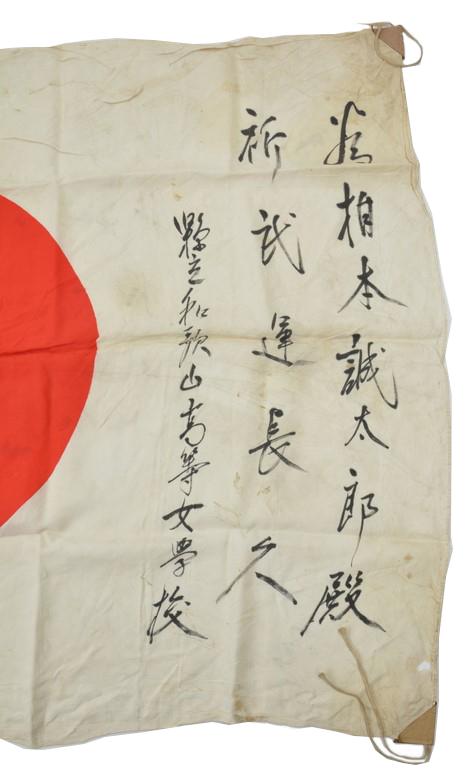 為柏本誠太郎殿
祈武運長久
縣立和歌山高等女學校